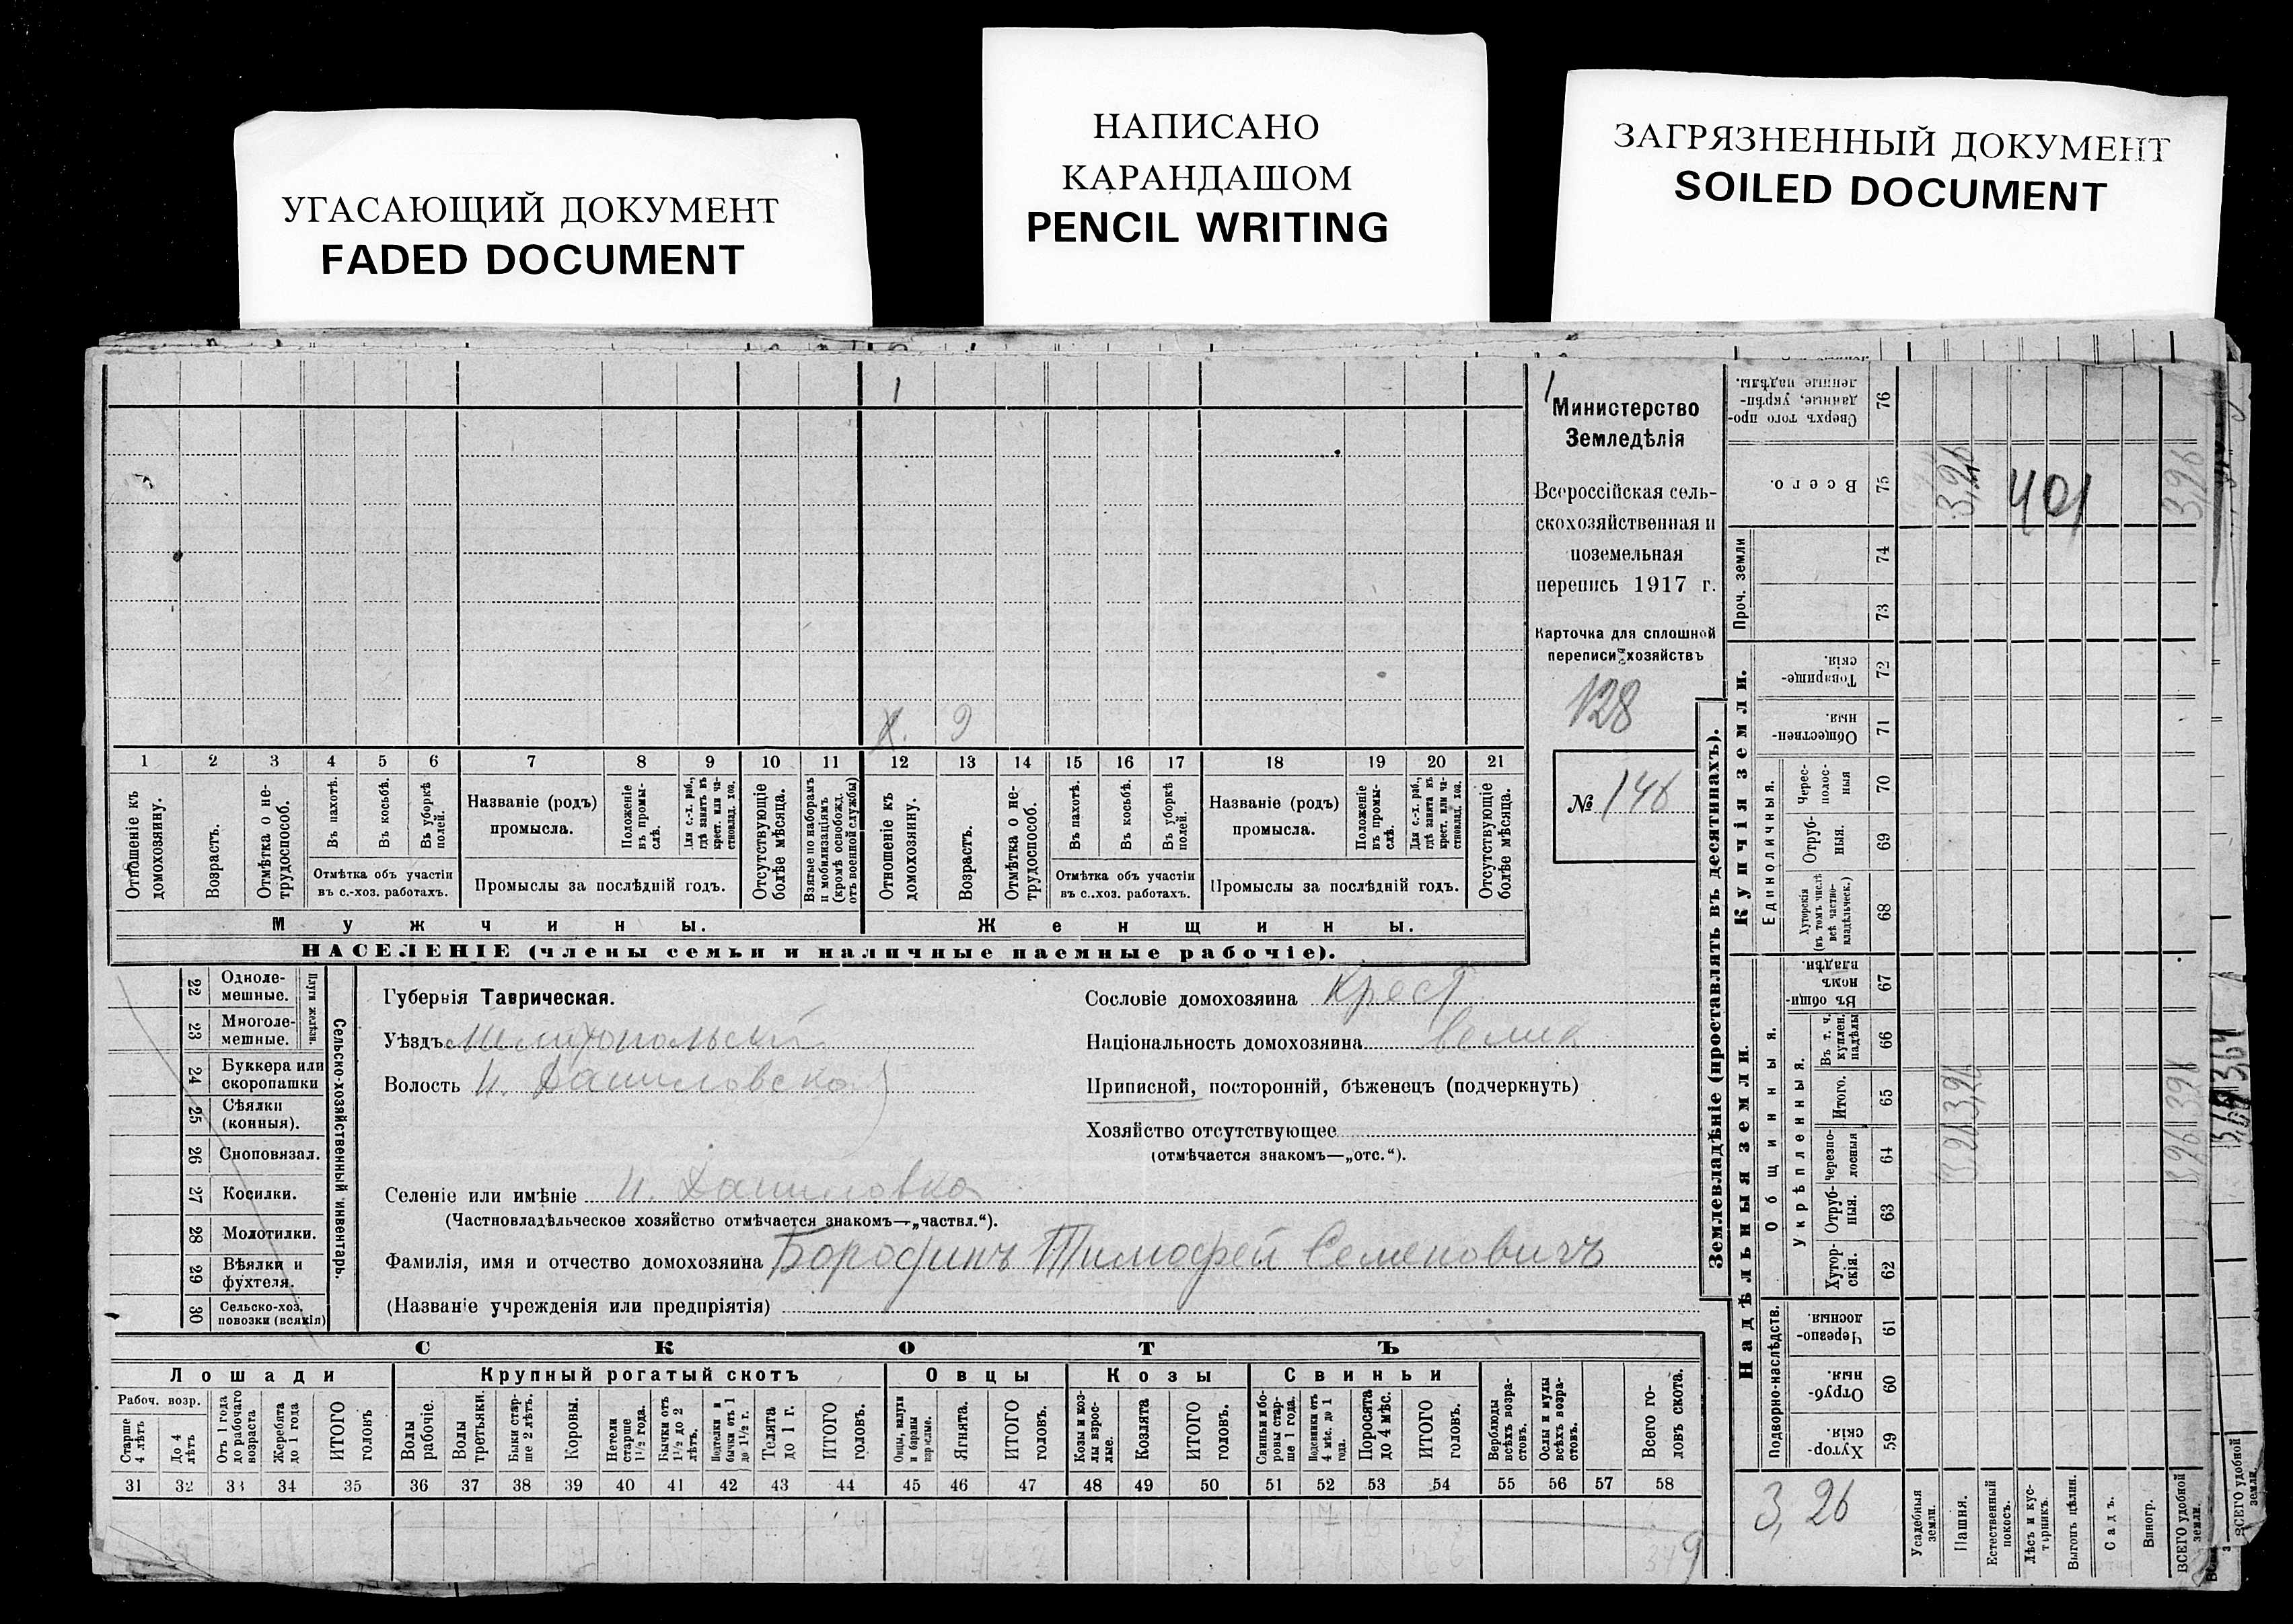 УГАСАЮЩИЙ ДОКУМЕНТ
FADED DOCUMENT
НАПИСАНО
КАРАНДАШОМ
PENCIL WRITING
ЗАГРЯЗНЕННЫЙ ДОКУМЕНТ
SOILED DOCUMENT
1
1
Министерство
Земледѣлія
Всероссійская сель-
скохозяйственная и
поземельная
перепись 1917 г.
Карточка для сплошной
переписи хозяйствъ
128
№ 146
9
1 2 3 4 5 6 7 8 9 10 11 12 13 14 15 16 17 18 19 20 21
Отношеніе къ домохозяину.
Возрастъ.
Отмѣтка о не-трудоспособ.
Въ пахотѣ.
Въ косьбѣ.
Въ уборкѣ полей.
Отмѣтка объ участіи
въ с.-хоз. работахъ.
Названіе (родъ)
промысла.
Положеніе въ промы-слѣ.
Для с.-х. раб., гдѣ занятъ въ крест. или ча-стновлад. хоз.
Промыслы за послѣдній годъ.
Отсутствующіе болѣе мѣсяца.
Взятые по наборамъ и мобилизаціямъ (кромѣ освобожд. отъ военной службы)
Отношеніе къ домохозяину.
Возрастъ.
Отмѣтка о не-трудоспособ.
Въ пахотѣ.
Въ косьбѣ.
Въ уборкѣ полей.
Отмѣтка объ участіи
въ с.-хоз. работахъ.
Названіе (родъ)
промысла.
Положеніе въ промы-слѣ.
Для с.-х. раб., гдѣ занята въ крест. или ча-стновлад. хоз.
Промыслы за послѣдній годъ.
Отсутствующіе болѣе мѣсяца.
Мужчины.
Женщины.
НАСЕЛЕНІЕ (члены семьи и наличные наемные рабочіе).
22 Одноле-мешные.
23 Многоле-мешные.
Плуги желѣзн.
24 Буккера или скоропашки
25 Сѣялки (конныя).
26 Сноповязал.
27 Косилки.
28 Молотилки.
29 Вѣялки и фухтеля.
30 Сельско-хоз. повозки (всякія)
Сельско-хозяйственный инвентарь.
Губернія Таврическая.
Уѣздъ Мелитопольскій
Волость Н. Даниловская
Сословіе домохозяина Крест
Національность домохозяина
Приписной, посторонній, бѣженецъ (подчеркнуть)
Хозяйство отсутствующее
(отмѣчается знакомъ—„отс.“).
Селеніе или имѣніе Н. Даниловка
(Частновладѣльческое хозяйство отмѣчается знакомъ—„частвл.“).
Фамилія, имя и отчество домохозяина Бородинъ Тимофей Семеновичъ
(Названіе учрежденія или предпріятія)
СКОТЪ
Лошади
Крупный рогатый скотъ
Овцы
Козы
Свиньи
Рабоч. возр.
Старше 4 лѣтъ
До 4 лѣтъ
Отъ 1 года до рабочаго возраста
Жеребята до 1 года
ИТОГО головъ
Волы рабочіе.
Волы третьяки.
Быки стар-ше 2 лѣтъ.
Коровы.
Нетели старше 1½ года.
Бычки отъ 1½ до 2 лѣтъ.
Подтелки и бычки отъ 1 до 1½ г.
Телята до 1 г.
ИТОГО головъ.
Овцы, валухи и бараны взрослые.
Ягнята.
ИТОГО головъ.
Козы и коз-лы взрос-лые.
Козлята
ИТОГО головъ.
Свиньи и бо-ровы стар-ше 1 года.
Подсвинки отъ 4 мѣс. до 1 года.
Поросята до 4 мѣс.
ИТОГО головъ.
Верблюды всѣхъ возра-стовъ.
Ослы и мулы всѣхъ возра-стовъ.
Всего го-ловъ скота.
31 32 33 34 35 36 37 38 39 40 41 42 43 44 45 46 47 48 49 50 51 52 53 54 55 56 57 58
349
Землевладѣніе (проставлять въ десятинахъ).
Купчія земли.
Надѣльныя земли.
Сверхъ того про-данные, укрѣп-ленные надѣлы. 76
Всего. 75
Проч. земли 74 73
Товарище-скія. 72
Обществен-ныя. 71
Единоличныя.
Черес-полос-ныя 70
Отруб-ныя. 69
Хуторскія (въ томъ числѣ всѣ частно-владѣльческ.) 68
Общинныя.
Въ общин-номъ владѣн. 67
Укрѣпленныя.
Въ т. ч. куплен. надѣлы 66
Итого. 65
Черезпо-лосныя 64
Отруб-ныя. 63
Хутор-скія. 62
Подворно-наслѣдств.
Черезпо-лосныя 61
Отруб-ныя 60
Хутор-скія. 59
3,26
401
3,26
3,26 3,26
3,26
3,26 3,26
Усадебныя земли.
Пашня.
Естественный покосъ.
Лѣсъ и кус-тарникъ.
Выгонъ цѣлин.
Садъ.
Виногр.
ВСЕГО удобной земли.
ВСЕГО удобной земли.